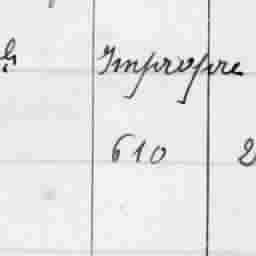 Impropre
610 2